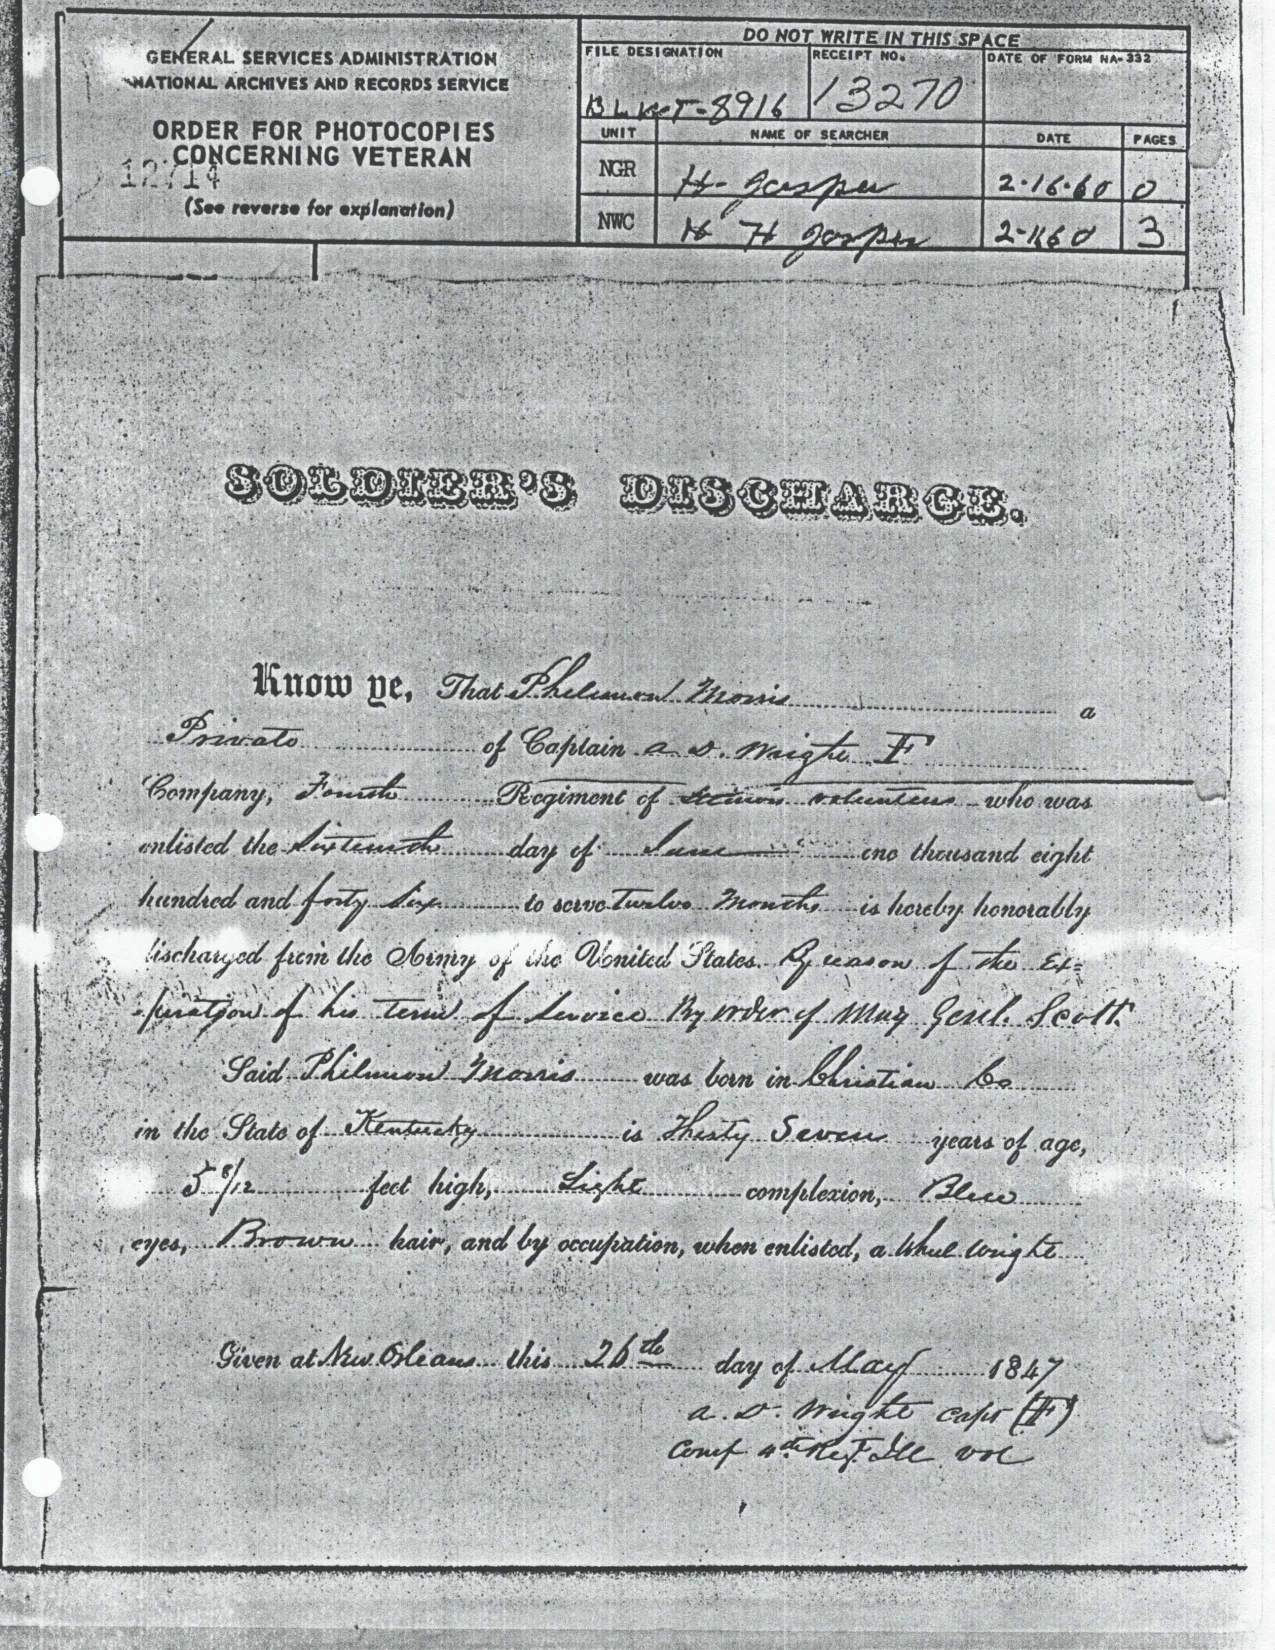 GENERAL SERVICES ADMINISTRATION
NATIONAL ARCHIVES AND RECORDS SERVICE
ORDER FOR PHOTOCOPIES
CONCERNING VETERAN
12714
(See reverse for explanation)
DO NOT WRITE IN THIS SPACE
FILE DESIGNATION RECEIPT NO. DATE OF FORM NA-332
BLWT-8916 13270
UNIT NAME OF SEARCHER DATE PAGES
NGR H. Jasper 2-16-60 0
NWC H Jasper 3
SOLDIER'S DISCHARGE.
Know ye, That Philemon Morris a
Private of Captain A. D. Wright F
Company, Fourth Regiment of Illinois Volunteers who was
enlisted the Sixteenth day of June one thousand eight
hundred and forty six to serve Twelve Months is hereby honorably
discharged from the Army of the United States By reason of the Ex=
piration of his term of Service By order of Maj Genl. Scott
Said Philemon Morris was born in Christian Co
in the State of Kentucky is Thirty Seven years of age,
5 8/12 feet high, Light complexion, Blue
eyes, Brown hair, and by occupation, when enlisted, a Wheel Wright
Given at New Orleans this 26th day of May 1847
A. D. Wright Capt (F)
Comp 4th Regt. Ill Vol